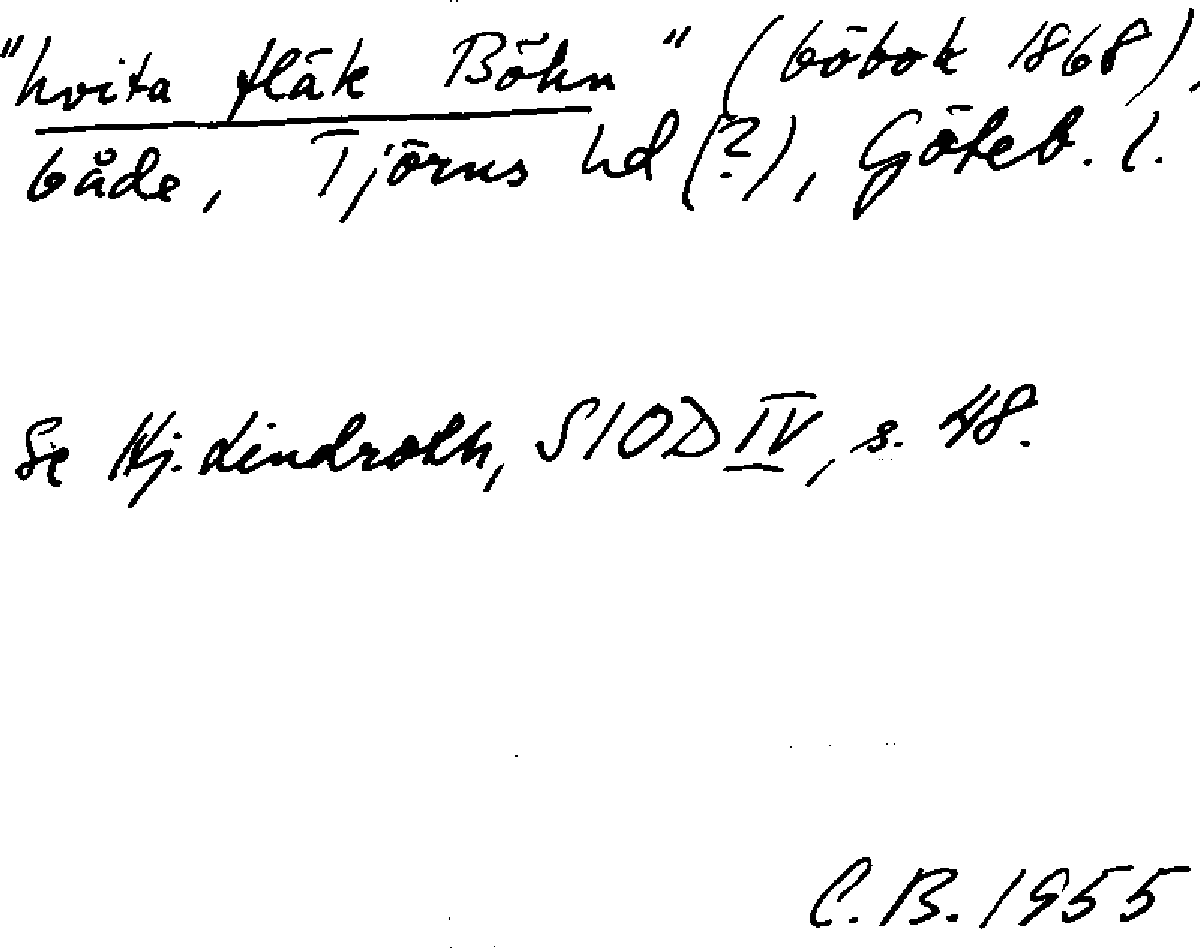 "hvita fläk Böhn" (böbok 1868),
både, Tjörns hd (?), Göteb. l.
Se Hj. Lindroth, SIOD IV, s. 48.
C.B. 1955